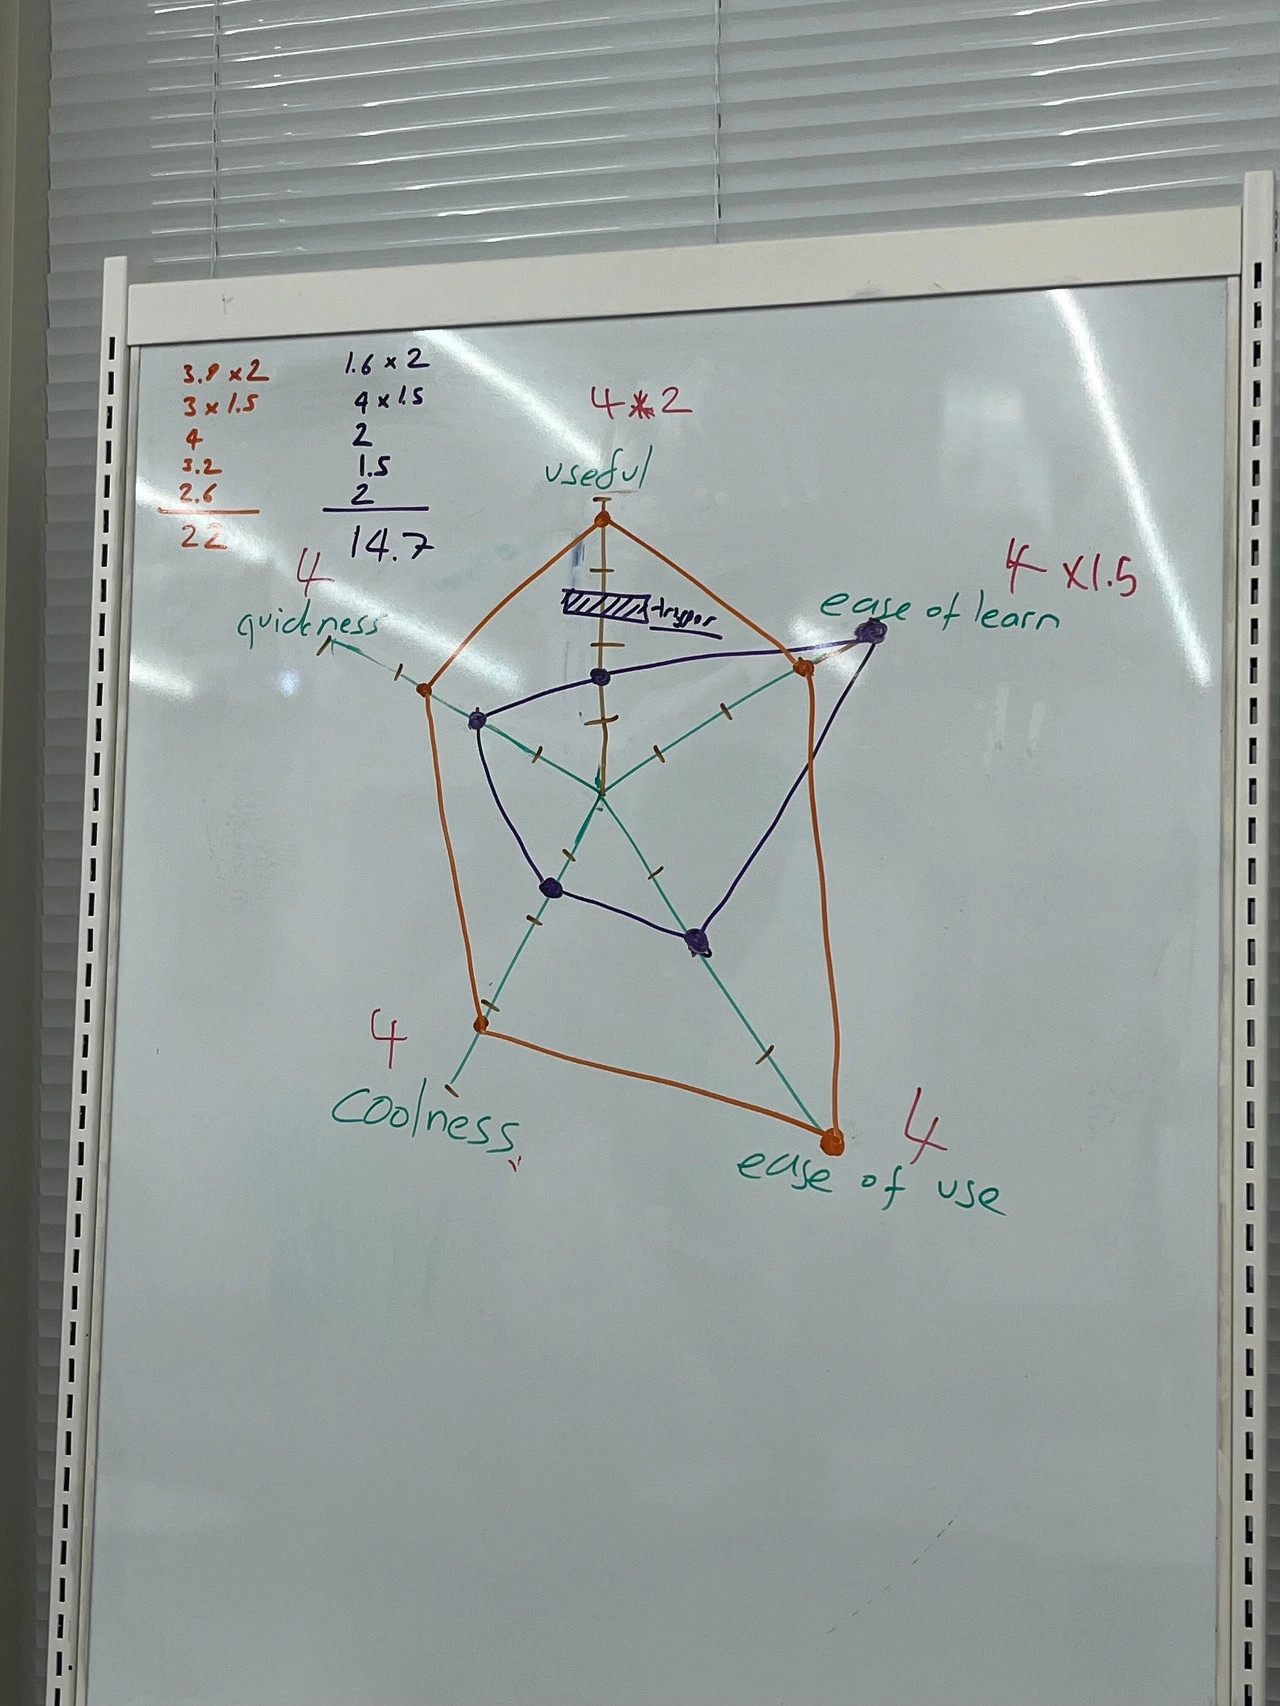 3.8 x 2
3 x 1.5
4
3.2
2.6
22
1.6 x 2
4 x 1.5
2
1.5
2
14.7
4 * 2
useful
4
quickness
4 x1.5
ease of learn
4
coolness
4
ease of use